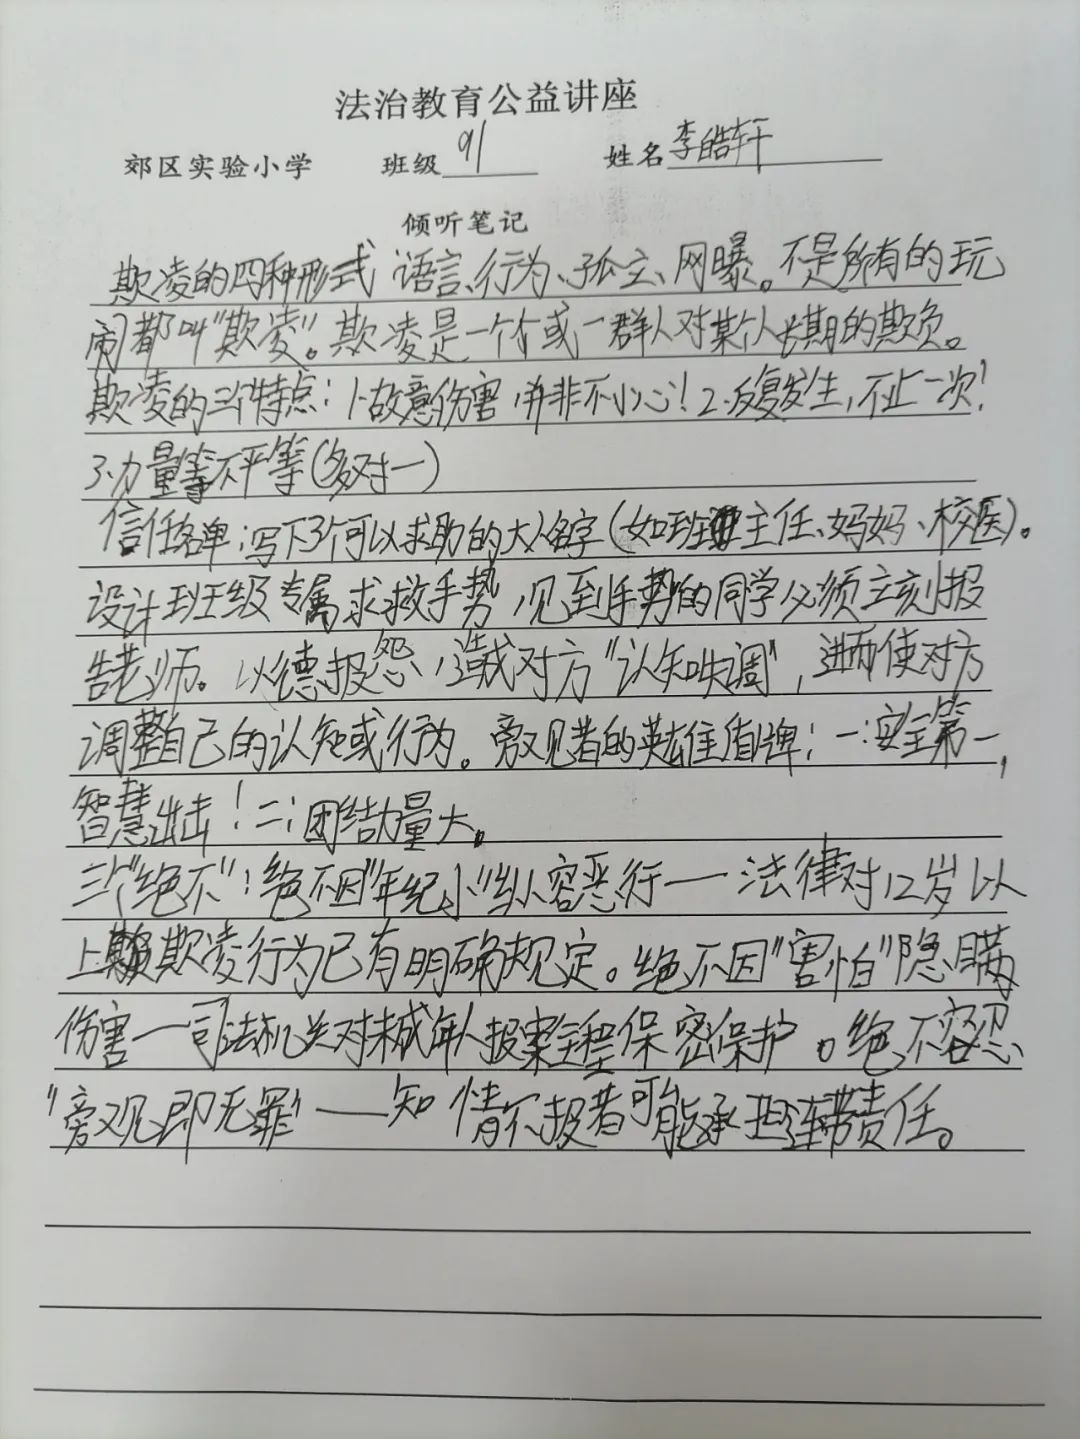 法治教育公益讲座
郊区实验小学 班级 91 姓名 李皓轩
倾听笔记
欺凌的四种形式 语言、行为、孤立、网曝。不是所有的玩
闹都叫“欺凌”。欺凌是一个或一群人对某个人长期的欺负。
欺凌的三个特点：1.故意伤害，并非不小心！2.反复发生，不止一次！
3.力量等不平等(多对一)
信任名单：写下3个可以求助的大人名字(如班主任、妈妈、校医)。
设计班级专属求救手势，见到手势的同学必须立刻报
告老师。以德报怨，造成对方“认知失调”，进而使对方
调整自己的认知或行为。旁观者的英雄盾牌：一：安全第一，
智慧出击！二：团结力量大。
三个“绝不”：绝不因“年纪小”纵容恶行——法律对12岁以
上欺凌行为已有明确规定。绝不因“害怕”隐瞒
伤害——司法机关对未成年人报案全程保密保护。绝不容忍
“旁观即无罪”——知情不报者可能承担连带责任。